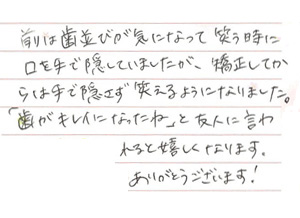 前は歯並びが気になって笑う時に
口を手で隠していましたが、矯正してか
らは手で隠さず笑えるようになりました。
「歯がキレイになったね」と友人に言わ
れると嬉しくなります。
ありがとうございます!